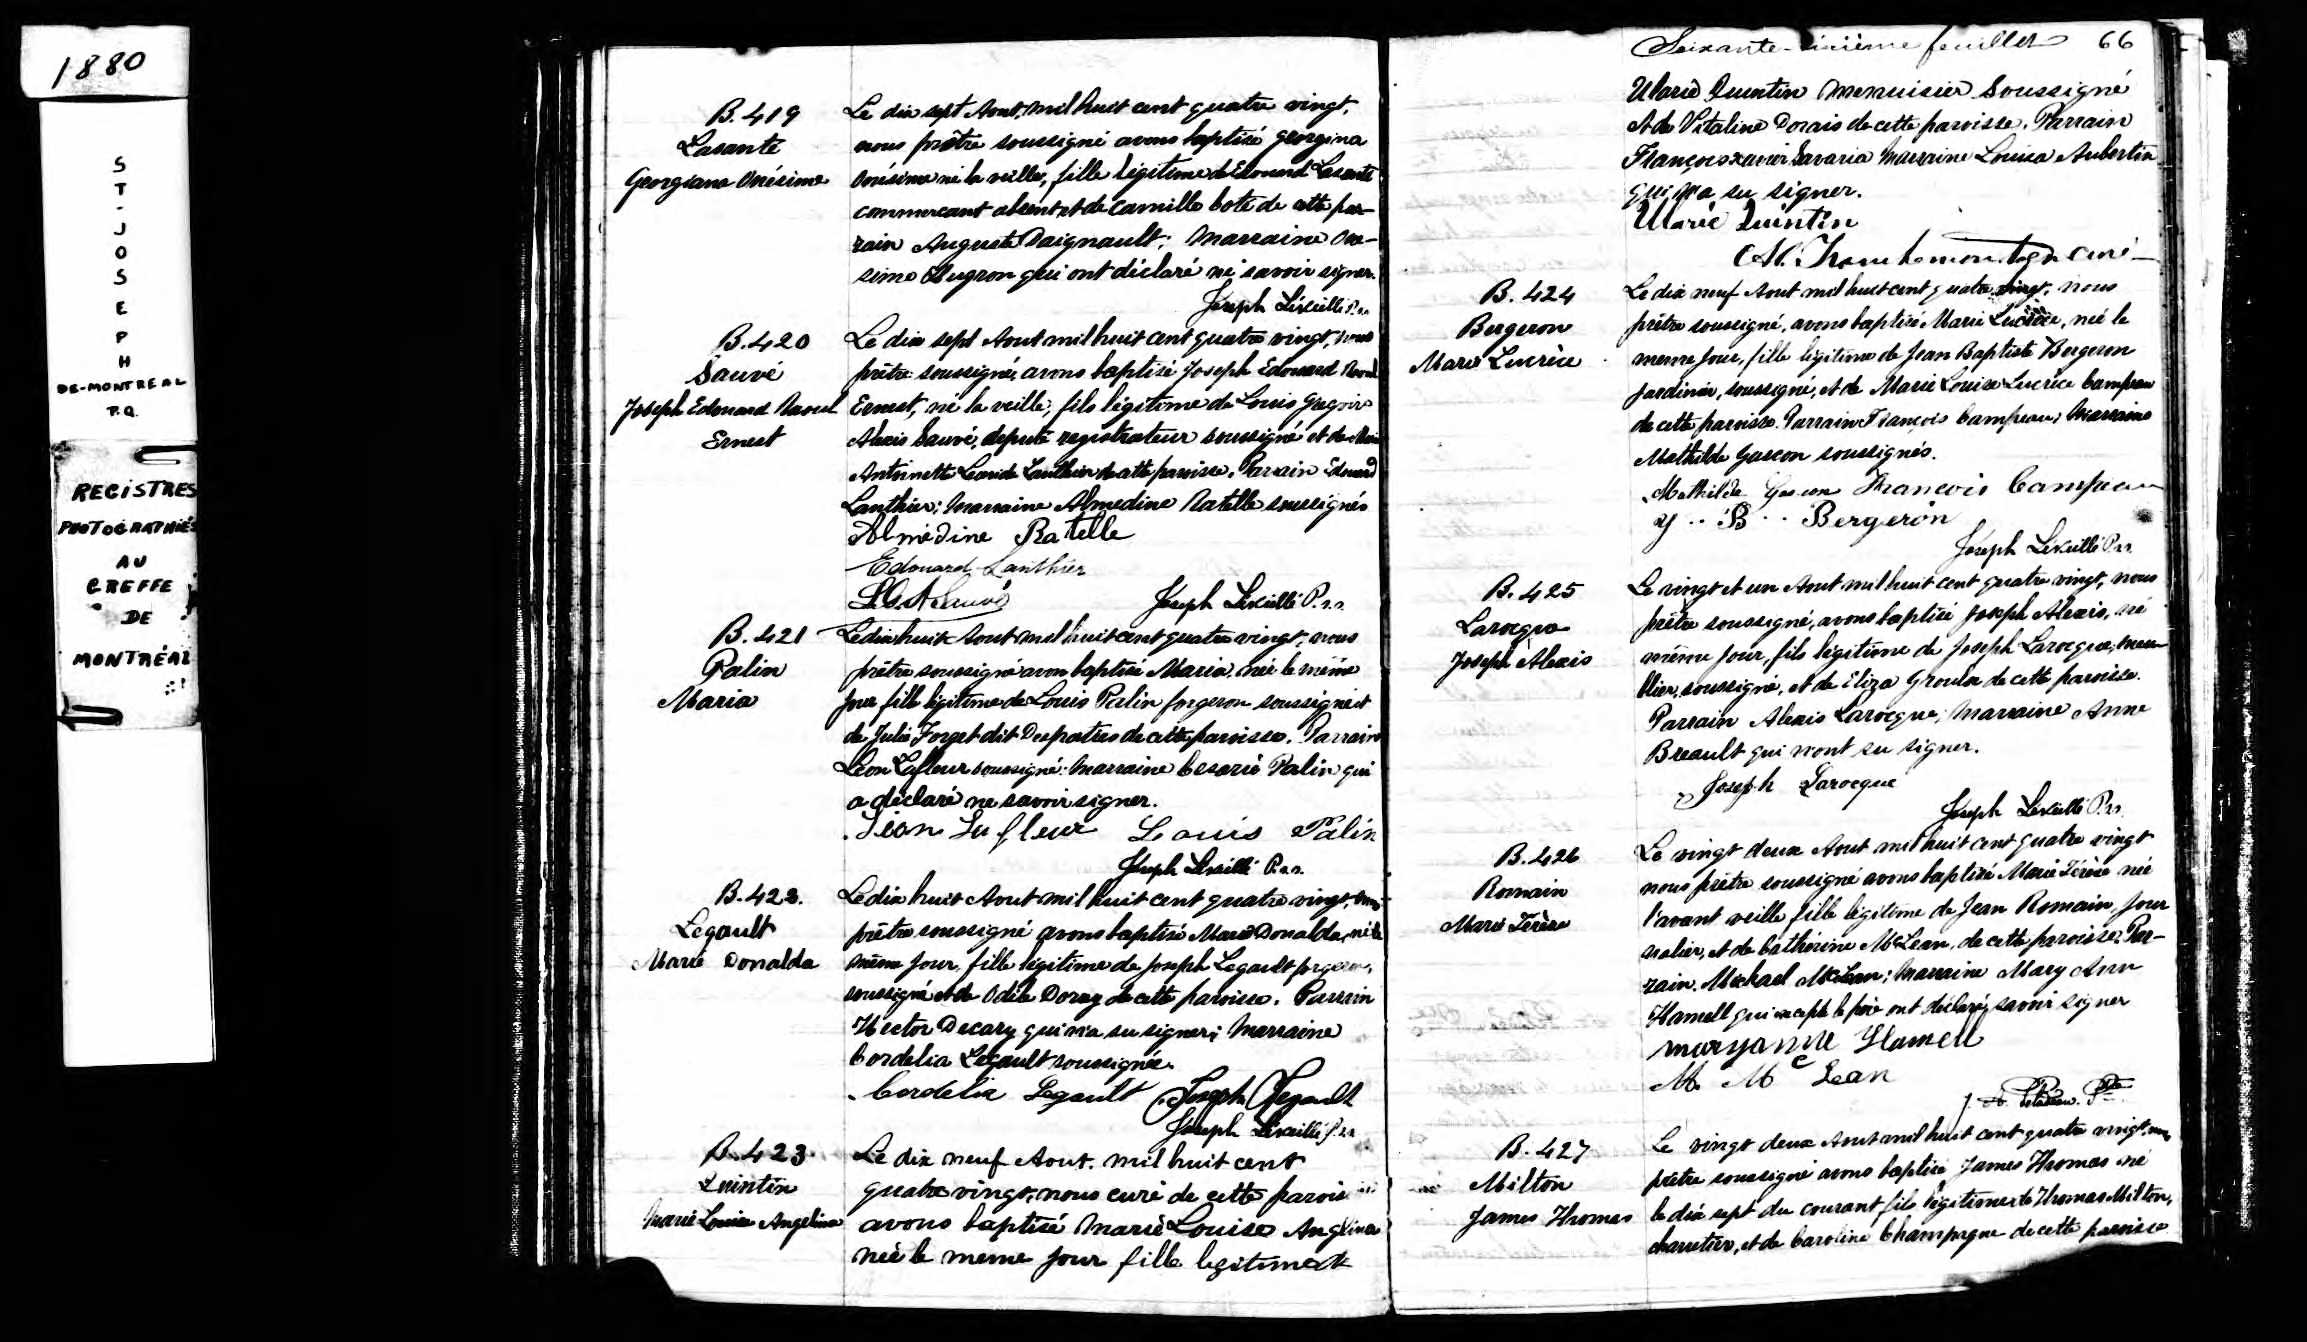 1880
ST-JOSEPH
DE-MONTREAL
P.Q.
REGISTRES
PHOTOGRAPHIÉS
AU
GREFFE
DE
MONTRÉAL
B. 419
Lasante
Georgiana Onésime
Le dix sept Aout, mil huit cent quatre vingt,
nous prêtre soussigné avons baptisé Georgina
Onésime né la veille, fille légitime de Edouard Lasante
commercant absent et de Camille Coté de cette par-
rain Auguste Daignault; Marraine One-
sime Hugron qui ont déclaré ne savoir signer.
Joseph Léveillé P.s.s.
B. 420
Sauvé
Joseph Edouard Raoul
Ernest
Le dix sept Aout mil huit cent quatre vingt, nous
prêtre soussigné, avons baptisé Joseph Edouard Raoul
Ernest, né la veille, fils légitime de Louis Gregoire
Alexis Sauvé, deputé registrateur soussigné et de Marie
Antoinette Lanthier de cette paroisse. Parrain Edouard
Lanthier; Marraine Almedine Ratelle soussignés
Almédine Ratelle
Edouard Lanthier
L.G.A. Sauvé
Joseph Léveillé P.s.s.
B. 421
Palin
Maria
Le dix huit Aout mil huit cent quatre vingt, nous
prêtre soussigné avons baptisé Maria née le même
jour fille légitime de Louis Palin forgeron soussigné et
de Julie Forget dit Despaties de cette paroisse. Parrain
Léon Lafleur soussigné: Marraine Cesarie Palin qui
a déclaré ne savoir signer.
Léon Lafleur Louis Palin
Joseph Léveillé P.s.s.
B. 422.
Legault
Marie Donalda
Le dix huit Aout mil huit cent quatre vingt, nous
prêtre soussigné avons baptisé Marie Donalda, né le
même jour, fille légitime de Joseph Legault forgeron,
soussigné et de Odile Doray de cette paroisse. Parrain
Hector Decary qui n'a su signer; Marraine
Cordelia Legault soussignée.
Cordelia Legault Joseph Legault
Joseph Léveillé P.s.s.
B. 423.
Quintin
Marie Louise Angelina
Le dix neuf Aout. mil huit cent
quatre vingt, nous curé de cette parois
avons baptisé Marie Louise Angelina
née le meme jour fille legitime de
Soixante-sixième feuillet 66
Ularie Quintin Menuisier Soussigné
et de Vitaline Dorais de cette paroisse. Parrain
François xavier Savaria Marraine Louisa Aubertin
qui n'a su signer.
Ularie Quintin
curé
B. 424
Bergeron
Marie Lucrèce
Le dix neuf Aout mil huit cent quatre vingt, nous
prêtre soussigné, avons baptisé Marie Lucrèce, née le
meme jour, fille légitime de Jean Baptiste Bergeron
jardinier, soussigné, et de Marie Louise Lucrèce Campeau
de cette paroisse. Parrain François Campeau; Marraine
Mathilde Gascon soussignés.
Mathilde Gascon Francois Campeau
J.. B.. Bergeron
Joseph Léveillé P.s.s.
B. 425
Larocque
Joseph Alexis
Le vingt et un Aout mil huit cent quatre vingt, nous
prêtre soussigné, avons baptisé Joseph Alexis, né
même jour, fils légitime de Joseph Larocque, meu-
blier, soussigné, et de Eliza Groulx de cette paroisse.
Parrain Alexis Larocque; Marraine Anne
Breault qui n'ont su signer.
Joseph Larocque
Joseph Léveillé P.s.s.
B. 426
Romain
Marie Térèse
Le vingt deux Aout mil huit cent quatre vingt
nous prêtre soussigné avons baptisé Marie Térèse née
l'avant veille fille légitime de Jean Romain, jour
nalier, et de Catherine McLean, de cette paroisse, Par-
rain. Michael McLean; Marraine Mary Ann
Hamell qui excepté le père ont déclaré savoir signer
maryanne Hamell
M. Mc Lean
B. 427
Milton
James Thomas
Le vingt deux Aout mil huit cent quatre vingt, nous
prêtre soussigné avons baptisé James Thomas né
le dix sept du courant fils légitime de Thomas Milton,
charretier, et de Caroline Champagne de cette paroisse